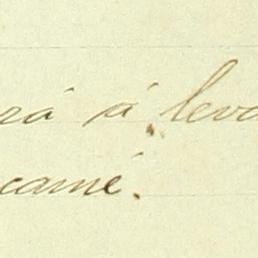 rá á leva
camé.